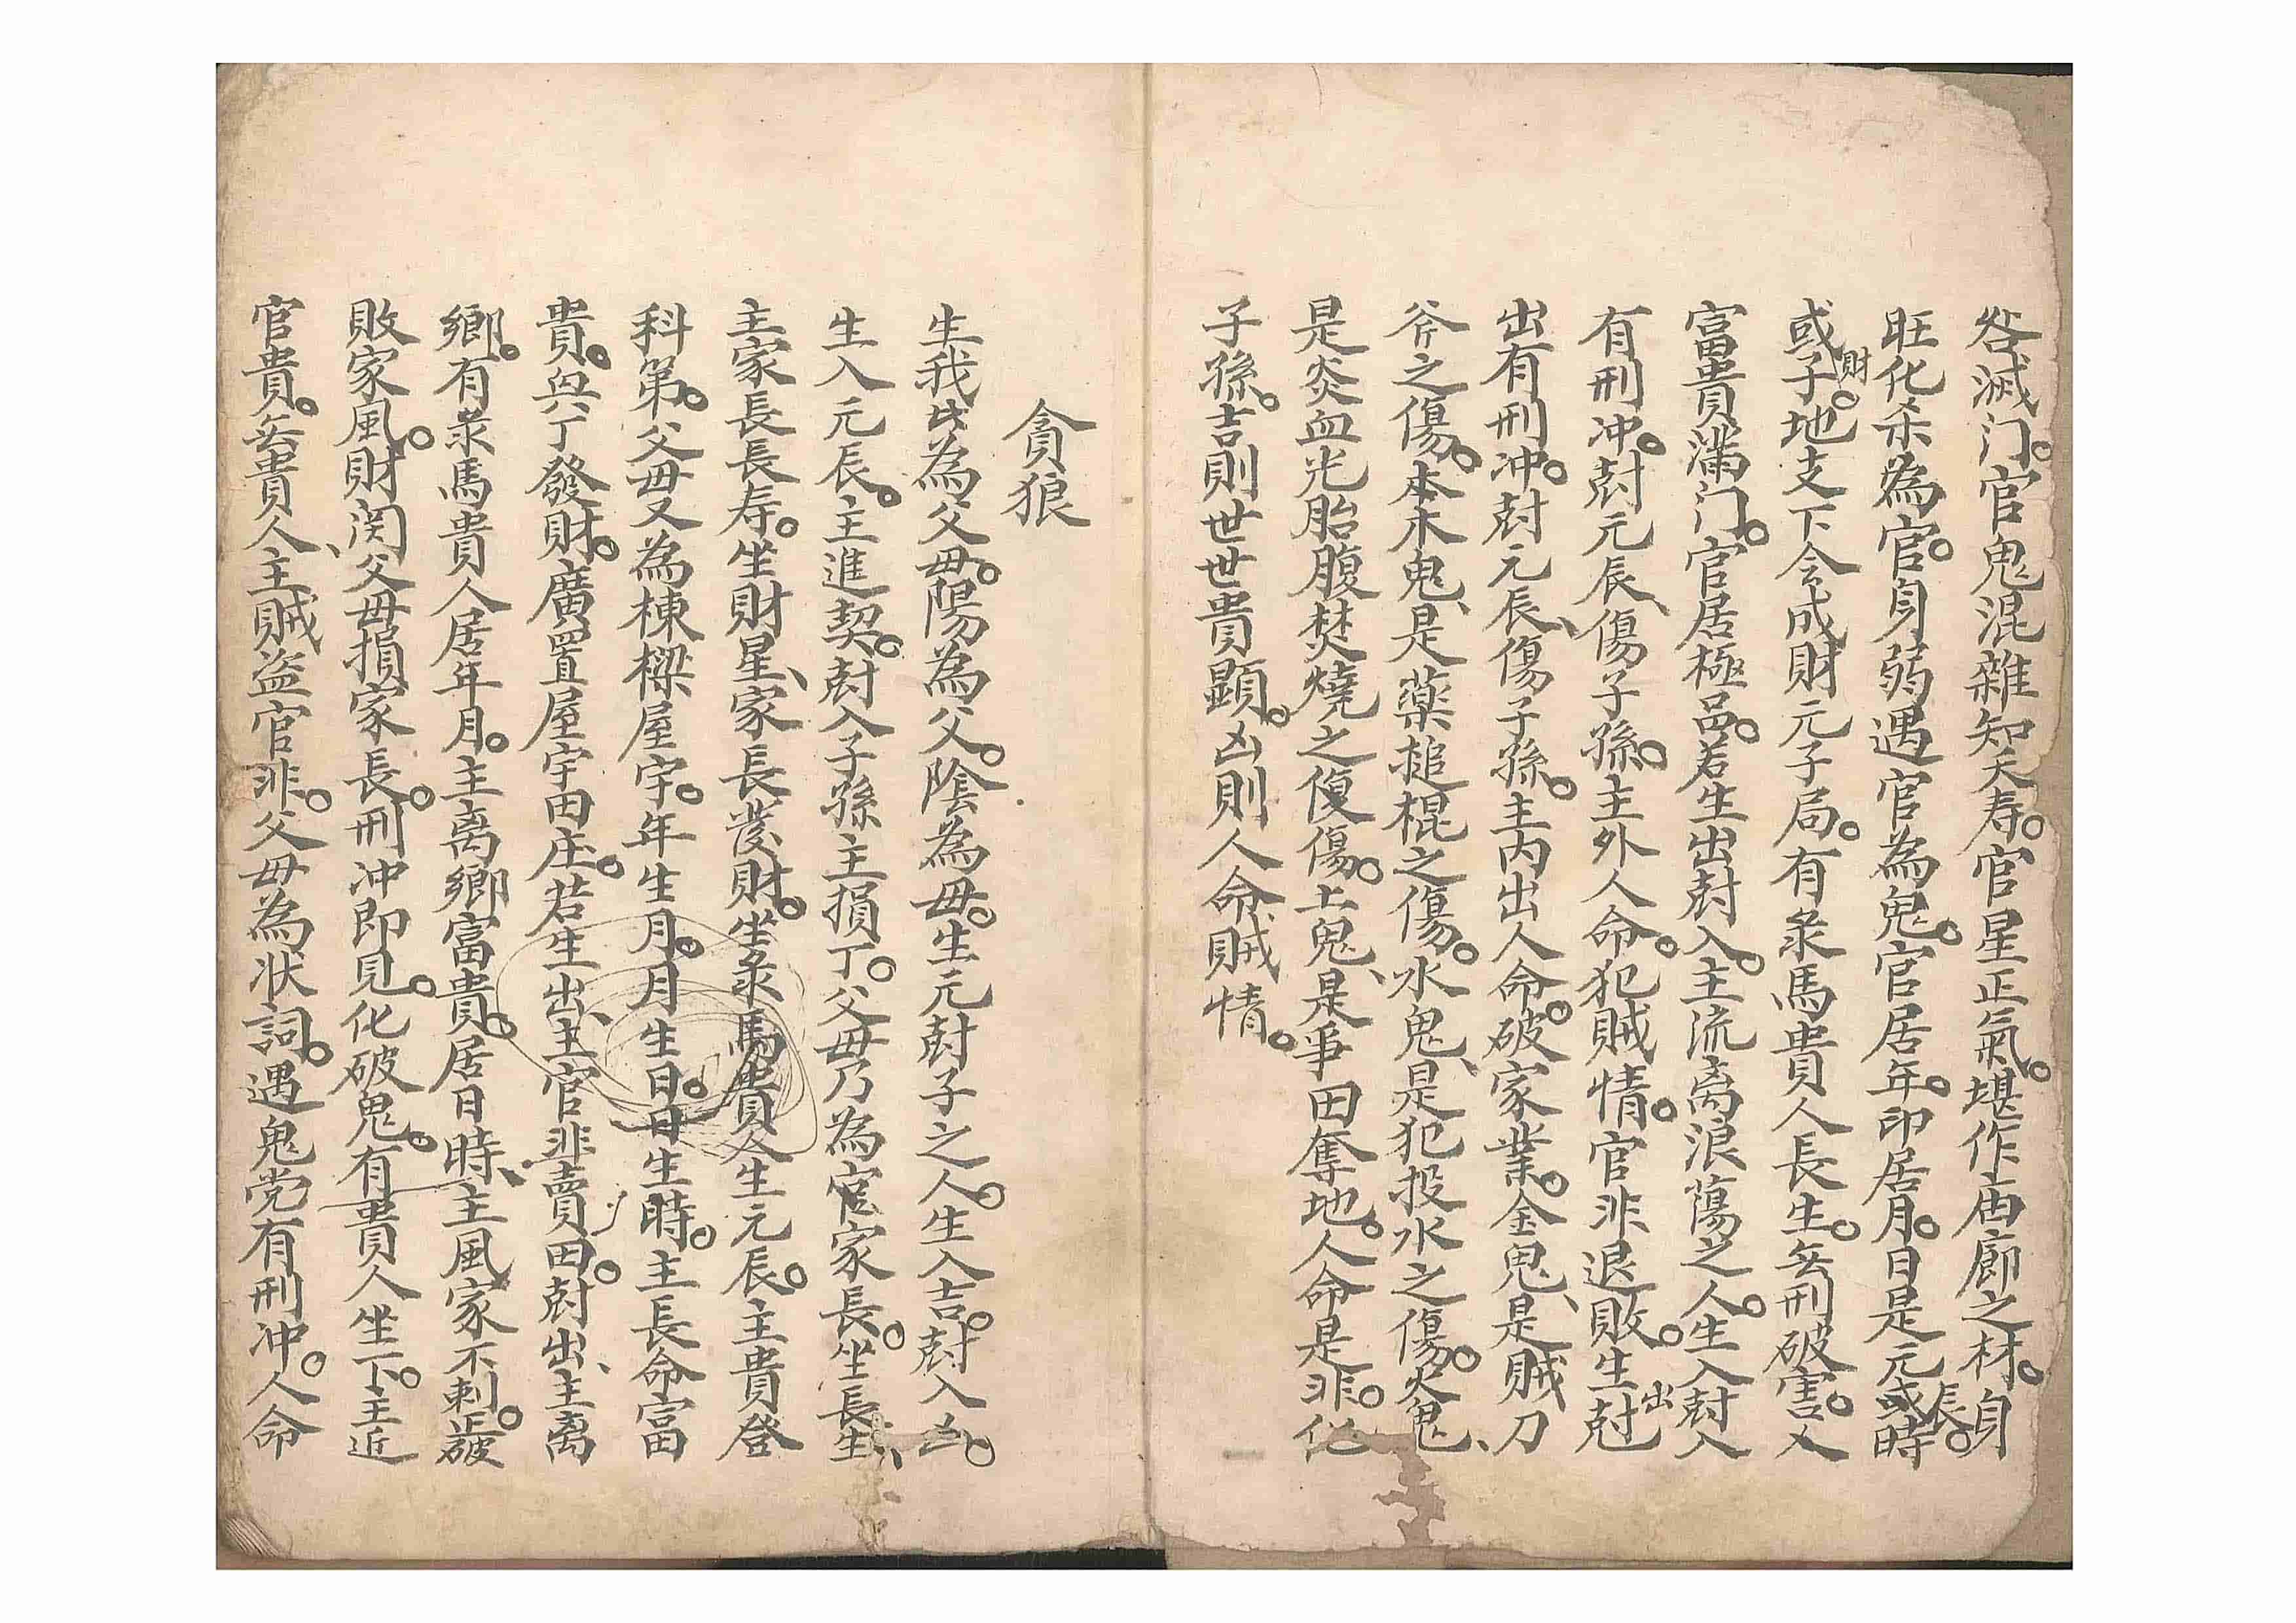 咎滅门。官鬼混雜知夭寿。官星正氣。堪作庙廊之材。身
旺化杀為官。身弱遇官為鬼。官居年。印居月。日是元辰。或時
或子財。地支下会成財元子局。有彔馬貴人長生。無刑破害。又
富貴滿门。官居極品。若生出尅入。主流离浪蕩之人。生入尅入
有刑冲。尅元辰、傷子孫。主外人命。犯賊情。官非退敗。生出尅
出有刑冲。尅元辰、傷子孫。主内出人命。破家業。金鬼、是賊刀
斧之傷。木鬼、是藥搥棍之傷。水鬼、是犯投水之傷。火鬼、
是炎血光胎腹焚燒之傷。土鬼、是爭田奪地。人命是非。化
子孫。吉則世世貴顕。凶則人命賊情。
貪狼
生我为為父母。陽為父。陰為母。生元尅子之人。生入吉。尅入凶。
生入元辰。主進契。尅入子孫主損丁。父母乃為家長。坐長生、
主家長長寿。坐財星、家長發財。坐彔馬貴人生元辰。主貴登
科第。父母又為棟樑屋宇。年生月。月生日。日生時。主長命富
貴。與丁發財。廣置屋宇田庄。若生出、主官非賣田。尅出、主离
鄉。有彔馬貴人居年月。主离鄉富貴。居日時、主風家不利。破
敗家風。財関父母損家長。刑冲即見。化破鬼。有貴人坐下。主近
官貴。無貴人、主賊盗官非。父母為状詞。遇鬼党有刑冲。人命